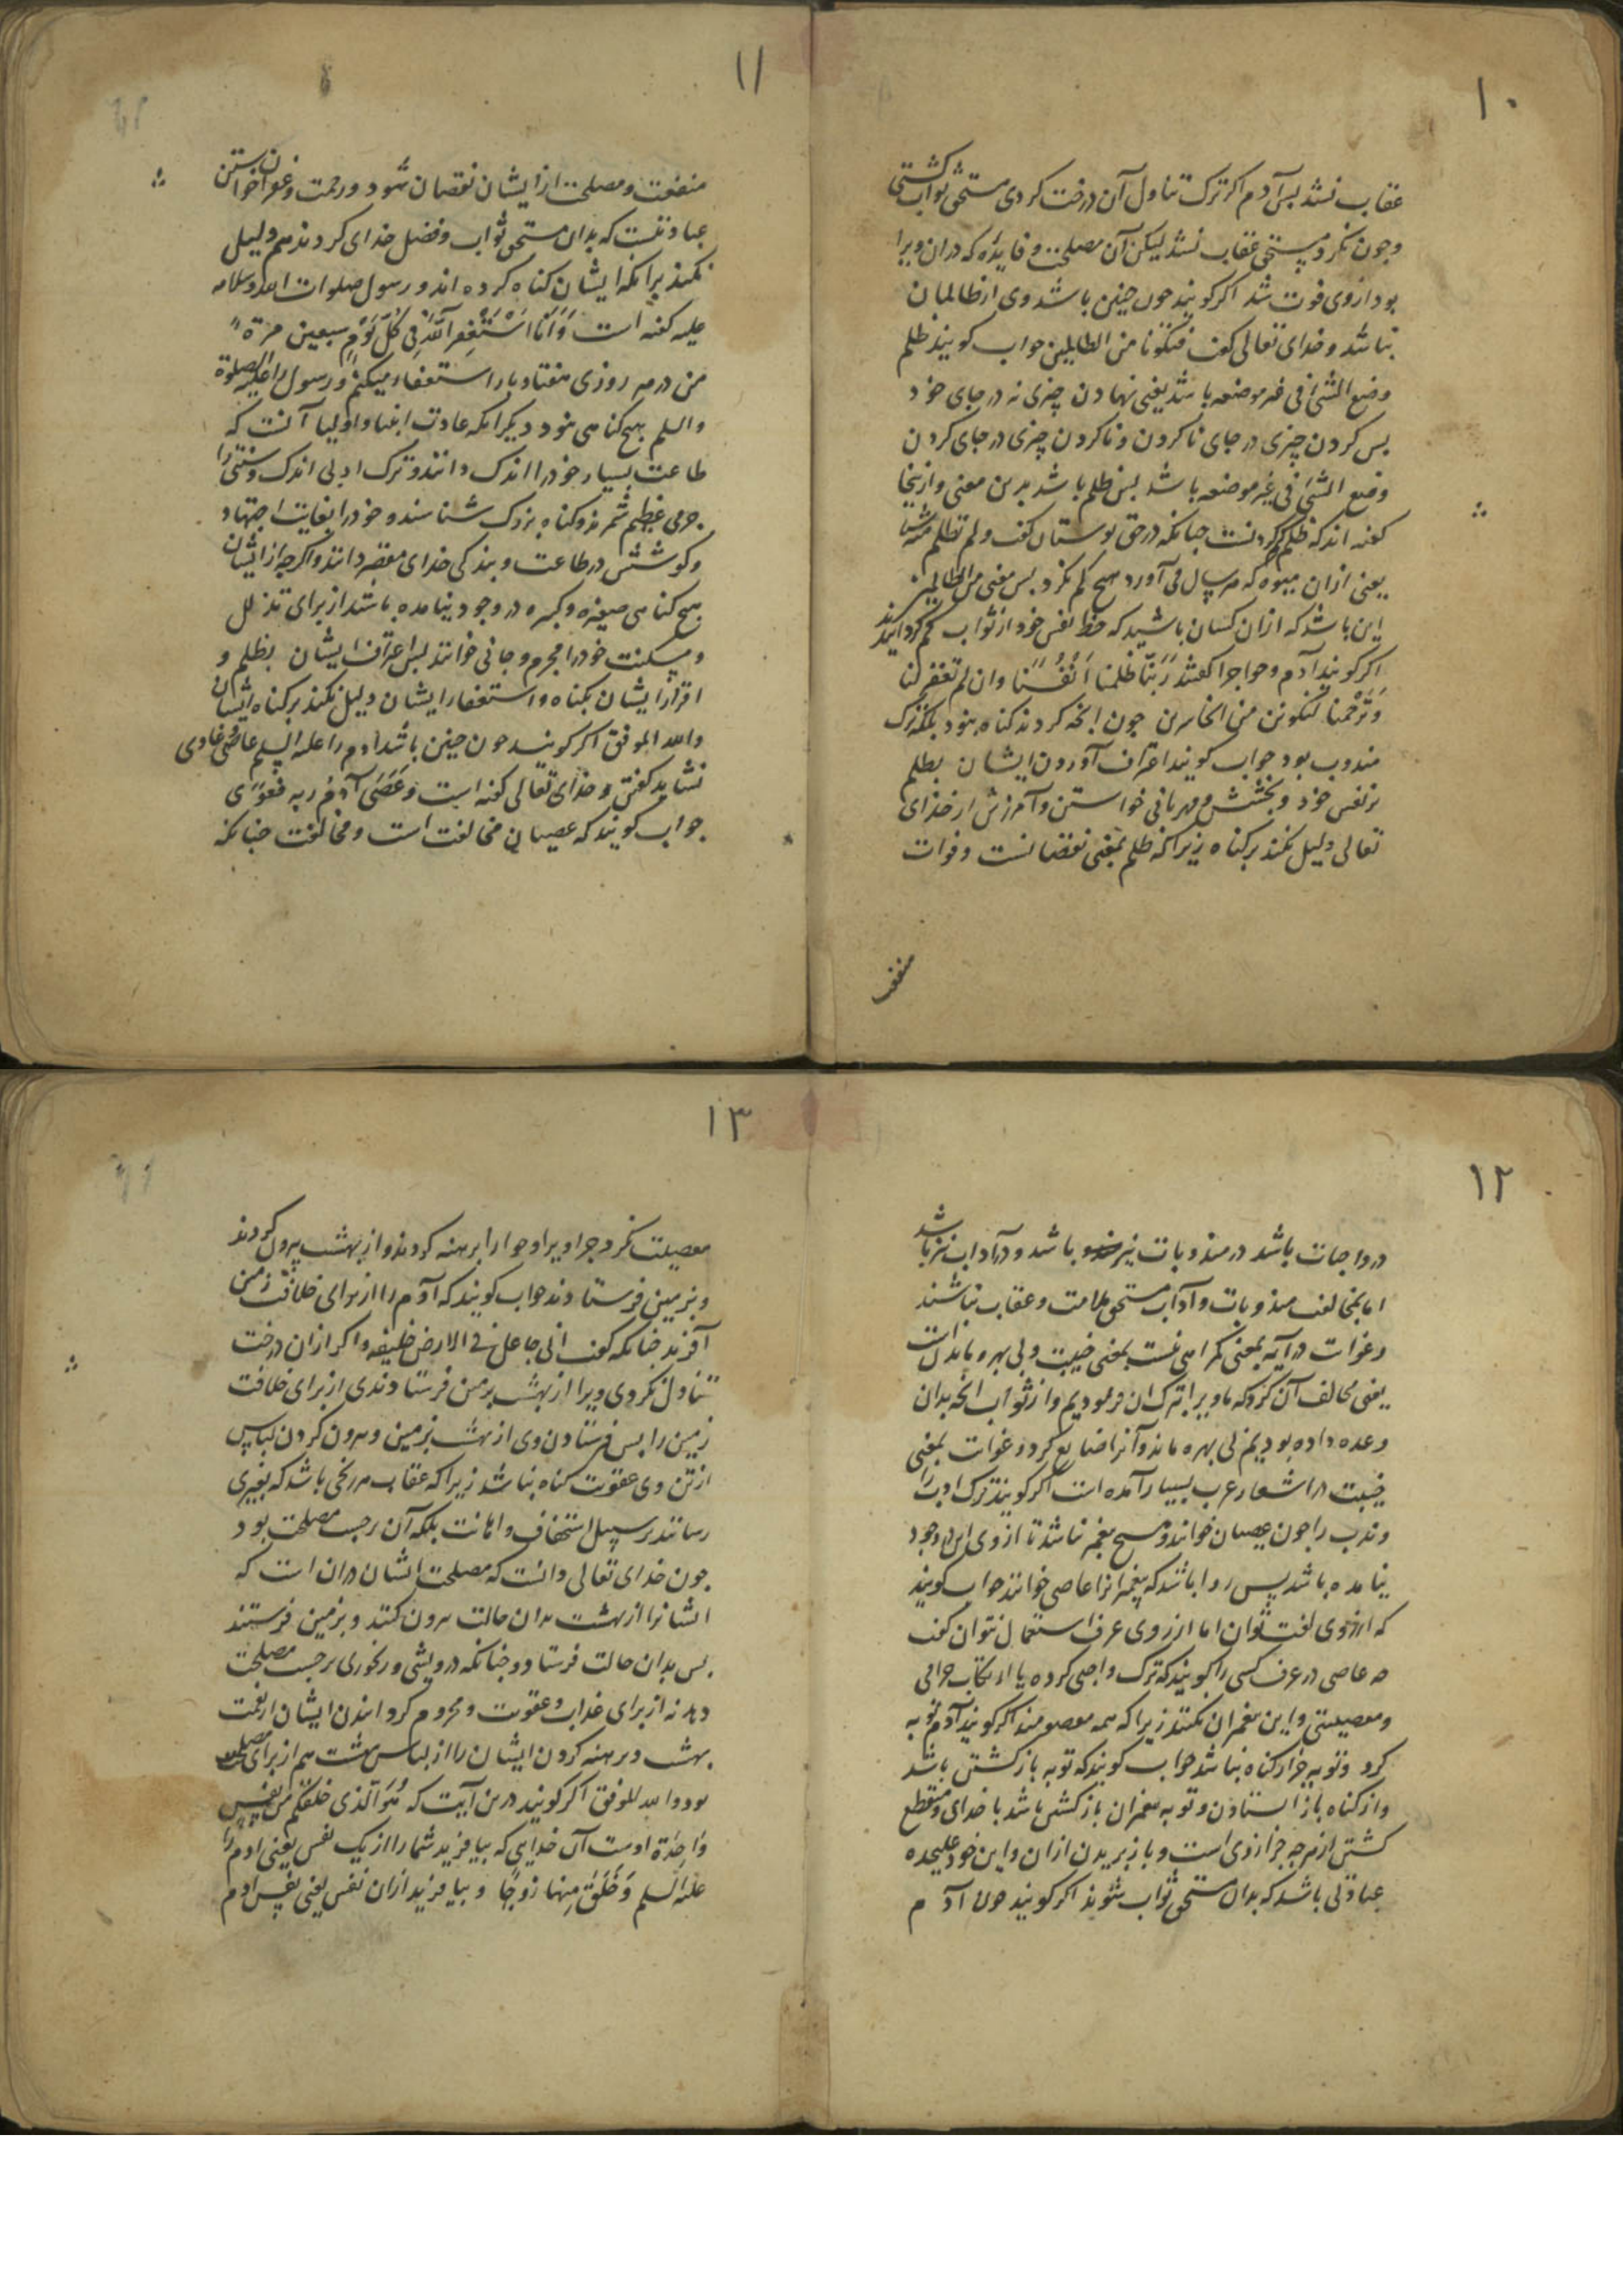 ۱۰
عقاب نشد بس آدم اکر ترک تناول آن درخت کردی مستحق ثواب کشتی
وجون نکرد مستحق عقاب نشد لیکن آن مصلحت و فایده که دران ویرا
بود ازوی فوت شد اکر کویند جون جنین باشد وی از ظالمان
نباشد و خدای تعالی کفت فتکونا من الظالمین جواب کویند ظلم
وضع الشئ فی غیر موضعه باشد یعنی نهادن چیزی نه در جای خود
بس کردن چیزی در جای ناکردن و ناکردن چیزی در جای کردن
وضع الشئ فی غیر موضعه باشد بس ظلم باشد بدین معنی و ازینجا
کفته اند که ظلم کم کردنست جنانکه در حق بوستان کفت ولم تظلم منه شیئا
یعنی ازان میوه که هر سال می آورد هیچ کم نکرد بس معنی من الظالمین
این باشد که ازان کسان باشید که حظ نفس خود از ثواب کم کردانیدند
اکر کویند آدم و حوا جرا کفتند رَبَّنا ظلمنا اَنْفُسَنا وان لم تغفر لنا
وَتَرْحَمنا لنکونن من الخاسرین جون انجه کردند کناه نبود بلکه ترک
مندوب بود جواب کویند اعتراف آوردن ایشان بظلم
بر نفس خود و بخشش و مهربانی خواستن و آمرزش از خدای
تعالی دلیل نکند بر کناه زیرا که ظلم بمعنی نقصانست و فوات
منفعت
۱۱
منفعت و مصلحت ازایشان نقصان شود و رحمت و غفران خواستن
عبادتست که بدان مستحق ثواب و فضل خدای کردند هم دلیل
نکند برانکه ایشان کناه کرده اند و رسول صلوات الله وسلامه
علیه کفته است وَاَنَا اَسْتَغْفِرُ اللّهَ فِی کُلِّ یَوْمٍ سبعین مرّة
من در هر روزی هفتاد بار استغفار میکنم و رسول را علیه الصلوة
والسلم هیج کناهی نبود دیکر انکه عادت انبیا و اولیا آنست که
طاعت بسیار خود را اندک دانند و ترک اولی اندک و سنتی را
جرمی عظیم شمرند و کناه بزرک شناسند و خود را بغایت اجتهاد
و کوشش در طاعت و بندکی خدای مقصر دانند و اکرجه ازایشان
هیج کناهی صغیره و کبیره در وجود نیامده باشد از برای تذلل
و مسکنت خود را مجرم و جانی خوانند بس اعتراف ایشان بظلم و
اقرار ایشان بکناه و استغفار ایشان دلیل نکند بر کناه ایشان
والله الموفق اکر کویند جون جنین باشد ادم را علیه السلم عاصی غاوی
نشاید کفتن و خدای تعالی کفته است وَعَصَی آدَمُ ربه فَغَوَی
جواب کویند که عصیان مخالفت است و مخالفت جنانکه
۱۲
در واجبات باشد در مندوبات نیز باشد و در آداب نیز باشد
اما بمخالفت مندوبات و آداب مستحق ملامت و عقاب نباشند
و غوایت در آیه بمعنی کمراهی نیست بمعنی خیبت و بی بهره ماندن است
یعنی مخالف آن کرد که ما ویرا بترک ان فرمودیم و از ثواب انجه بدان
وعده داده بودیم بی بهره ماند و آنرا ضایع کرد و غوایت بمعنی
خیبت در اشعار عرب بسیار آمده است اکر کویند ترک ادب را
و ندب را جون عصیان خوانند و هیج پیغمبر نباشد تا از وی این در وجود
نیامده باشد پس روا باشد که پیغمبرانرا عاصی خوانند جواب کویند
که ازروی لغت توان اما ازروی عرف استعمال نتوان کفت
جه عاصی در عرف کسی را کویند که ترک واجبی کرده یا ارتکاب حرامی
و معصیتی و این پیغمبران نکنند زیرا که همه معصومند اکر کویند آدم توبه
کرد و توبه جز از کناه نباشد جواب کویند که توبه باز کشتن باشد
و از کناه باز استادن و توبه پیغمبران باز کشتن باشد با خدای و منقطع
کشتن از هرجه جز از وی است و باز بریدن ازان و این خود علیحده
عبادتی باشد که بدان مستحق ثواب شوند اکر کویند جون آدم
۱۳
معصیت نکرد جرا ویرا و حوا را برهنه کردند و از بهشت بیرون کردند
و بزمین فرستادند جواب کویند که آدم را از برای خلافت زمین
آفرید جنانکه کفت انی جاعل فی الارض خلیفه و اکر ازان درخت
تناول نکردی ویرا از بهشت بزمین فرستادندی از برای خلافت
زمین را بس فرستادن وی از بهشت بزمین و بیرون کردن لباس
از تن وی عقوبت کناه نباشد زیرا که عقاب هر رنجی باشد که بغیری
رسانند بر سبیل استخفاف و اهانت بلکه آن برحسب مصلحت بود
جون خدای تعالی دانست که مصلحت ایشان دران است که
ایشانرا از بهشت بدان حالت بیرون کنند و بزمین فرستند
بس بدان حالت فرستاد و جنانکه درویشی و رنجوری برحسب مصلحت
دهد نه از برای عذاب و عقوبت و محروم کردانیدن ایشان از نعمت
بهشت و برهنه کردن ایشان را از لباس بهشت هم از برای مصلحت
بود والله الموفق اکر کویند درین آیت که هُوَ الَّذی خلقکم من نفس
وَاحِدَة اوست آن خدایی که بیافرید شما را از یک نفس یعنی ادم را
علیه السلم وَخَلَقَ مِنها زوجَها و بیافرید ازان نفس یعنی نفس ادم